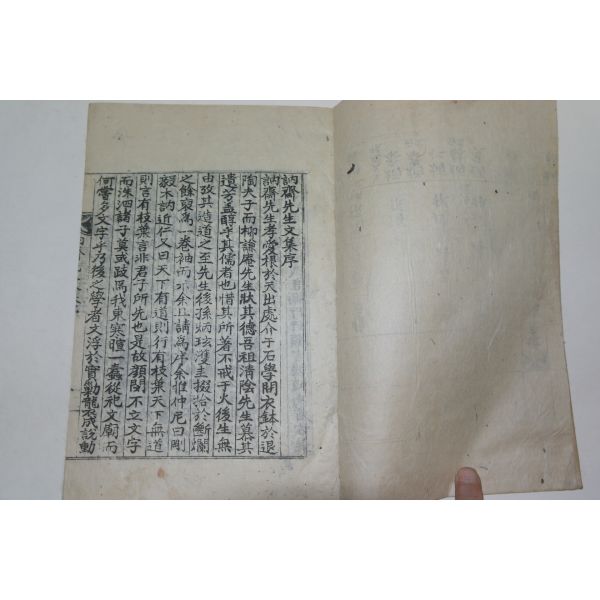 訥齋先生文集序
訥齋先生孝愛根於天出處介于石學開衣鉢於退
陶夫子而柳謙庵先生狀其德吾祖清陰先生纂其
遺芳盖醇乎其儒者也惜其所著不戒于火後生無
由攷其造道之至先生後孫炳玹瀅圭掇拾於斷爛
之餘裒爲一卷袖而示余且請爲序余惟仲尼曰剛
毅木訥近仁又曰天下有道則行有枝葉天下無道
則言有枝葉言非君子所先也是故顔閔不立文字
而洙泗諸子莫或跂焉我東寒暄一蠹從祀文廟而
何嘗多文字乎乃後之學者文浮於實動輒成說動